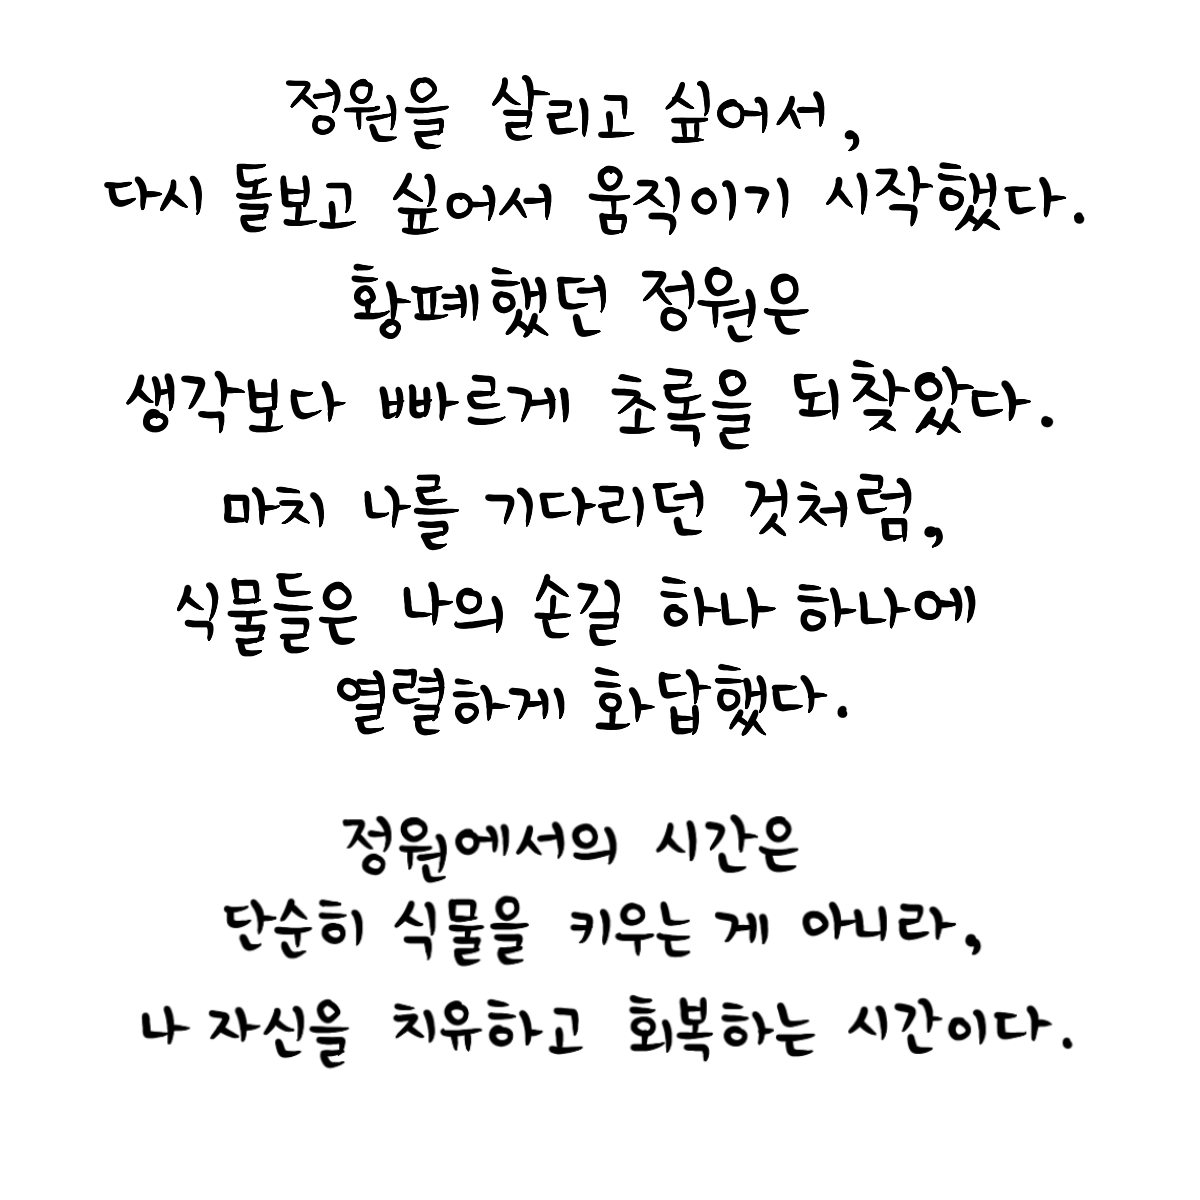 정원을 살리고 싶어서,
다시 돌보고 싶어서 움직이기 시작했다.
황폐했던 정원은
생각보다 빠르게 초록을 되찾았다.
마치 나를 기다리던 것처럼,
식물들은 나의 손길 하나 하나에
열렬하게 화답했다.
정원에서의 시간은
단순히 식물을 키우는 게 아니라,
나 자신을 치유하고 회복하는 시간이다.